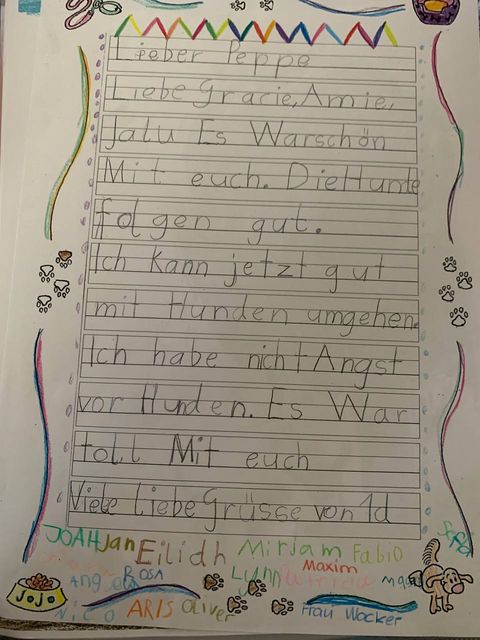 Lieber Peppe
Liebe Gracie, Amie,
Jalu Es War schön
Mit euch. Die Hunde
folgen gut.
Ich kann jetzt gut
mit Hunden umgehen.
Ich habe nicht Angst
vor Hunden. Es War
toll Mit euch
Viele liebe Grüsse von 1d
JOAH Jan Eilidh Mirjam Fabio
Rosa Lynn Patricia Maxim
JoJo
Nico ARIS Oliver Frau Wacker